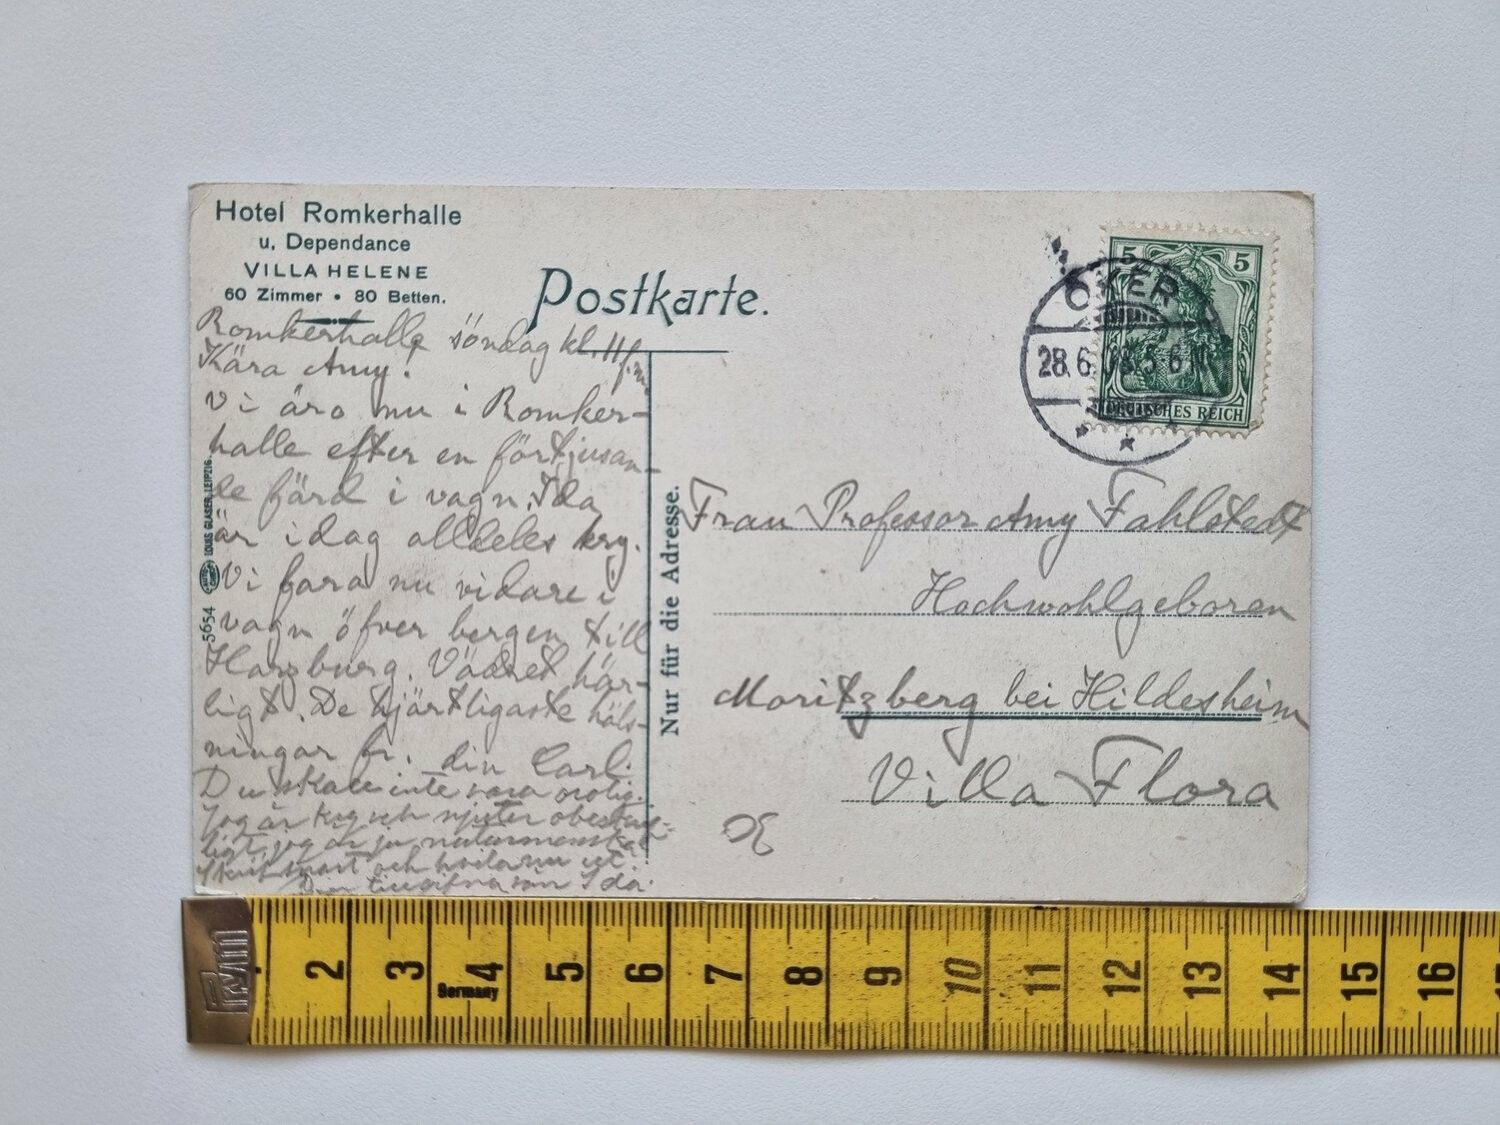 Hotel Romkerhalle
u. Dependance
VILLA HELENE
60 Zimmer • 80 Betten.
Postkarte.
Romkerhalle söndag kl. 11 f.m.
Kära Amy!
Vi äro nu i Romker-
halle efter en förtjusan-
de färd i vagn. Ida
är idag alldeles kry.
Vi fara nu vidare i
vagn öfver bergen till
Harzburg. Vädret här-
ligt. De hjärtligaste häls-
ningar fr. din Carl.
Du skall inte vara orolig.
Jag är kry och njuter obeskrif-
ligt, jag är ju
Skrif snart och
Din tillgifna vän Ida.
5654 LOUIS GLASER, LEIPZIG.
Nur für die Adresse.
5 5
DEUTSCHES REICH
OKER
28.6.08. 5-6 N
Frau Professor Amy Fahlstedt
Hochwohlgeboren
Moritzberg bei Hildesheim
Villa Flora
2 3 4 5 6 7 8 9 10 11 12 13 14 15 16
Germany
Prym